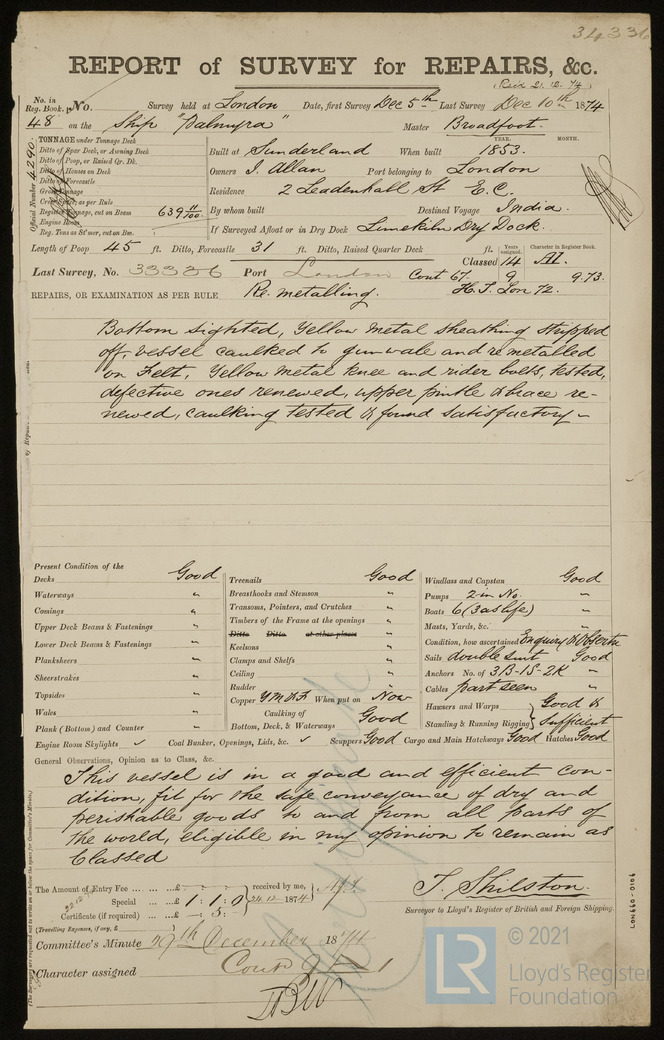 34336
REPORT of SURVEY for REPAIRS, &c.
Recd 21. 12. 74
No. in Reg. Book.
No. Survey held at London Date, first Survey Dec 5th Last Survey Dec 10th 1874
48 on the Ship "Palmyra" Master Broadfoot.
TONNAGE under Tonnage Deck
Ditto of Spar Deck, or Awning Deck
Ditto of Poop, or Raised Qr. Dk.
Ditto of Houses on Deck
Ditto of Forecastle
Gross Tonnage
Crew Space, as per Rule
Register Tonnage, cut on Beam 639 11/100
Engine Room
Reg. Tons as St'mer, cut on Bm.
Official Number 4290
YEAR. MONTH.
Built at Sunderland When built 1853.
Owners J. Allan Port belonging to London
Residence 2 Leadenhall St E.C.
By whom built Destined Voyage India.
If Surveyed Afloat or in Dry Dock Limekiln Dry Dock.
Length of Poop 45 ft. Ditto, Forecastle 31 ft. Ditto, Raised Quarter Deck ft.
Years assigned. Character in Register Book.
Classed 14 A1.
Last Survey, No. 33386 Port London Cont 67. 9 9.73.
H.T. Lon 72.
REPAIRS, OR EXAMINATION AS PER RULE Re. metalling.
Bottom sighted, Yellow Metal sheathing stripped
off, vessel caulked to gunwale and re metalled
on Felt, Yellow Metal knee and rider bolts, tested,
defective ones renewed, upper pintle & brace re-
newed, caulking tested & found satisfactory –
Present Condition of the
Decks Good
Waterways "
Comings "
Upper Deck Beams & Fastenings "
Lower Deck Beams & Fastenings "
Planksheers "
Sheerstrakes "
Topsides "
Wales "
Plank (Bottom) and Counter "
Treenails Good
Breasthooks and Stemson "
Transoms, Pointers, and Crutches "
Timbers of the Frame at the openings "
Ditto Ditto at other places
Keelsons "
Clamps and Shelfs "
Ceiling "
Rudder "
Copper Y.M & F When put on Now
Caulking of
Bottom, Deck, & Waterways Good
Windlass and Capstan Good
Pumps 2 in No. "
Boats 6 (3 as life) "
Masts, Yards, &c. "
Condition, how ascertained Enquiry & Observtn
Sails double suit Good
Anchors No. of 3B-1S-2K "
Cables part seen "
Hawsers and Warps
Standing & Running Rigging } Good & sufficient
Engine Room Skylights ✓ Coal Bunker, Openings, Lids, &c. ✓ Scuppers Good Cargo and Main Hatchways Good Hatches Good
General Observations, Opinion as to Class, &c.
This vessel is in a good and efficient con-
dition, fit for the safe conveyance of dry and
perishable goods to and from all parts of
the world, eligible in my opinion to remain as
Classed
The Amount of Entry Fee ... £ : : received by me,
Special ... £ 1 : 1 : 0 24.12.1874
Certificate (if required) ... £ . 5 .
(Travelling Expenses, if any, £ )
T. Shilston.
Surveyor to Lloyd's Register of British and Foreign Shipping.
Committee's Minute 29th December 1874
Character assigned Cont
LON690-0109
© 2021
LR
Lloyd's Register
Foundation